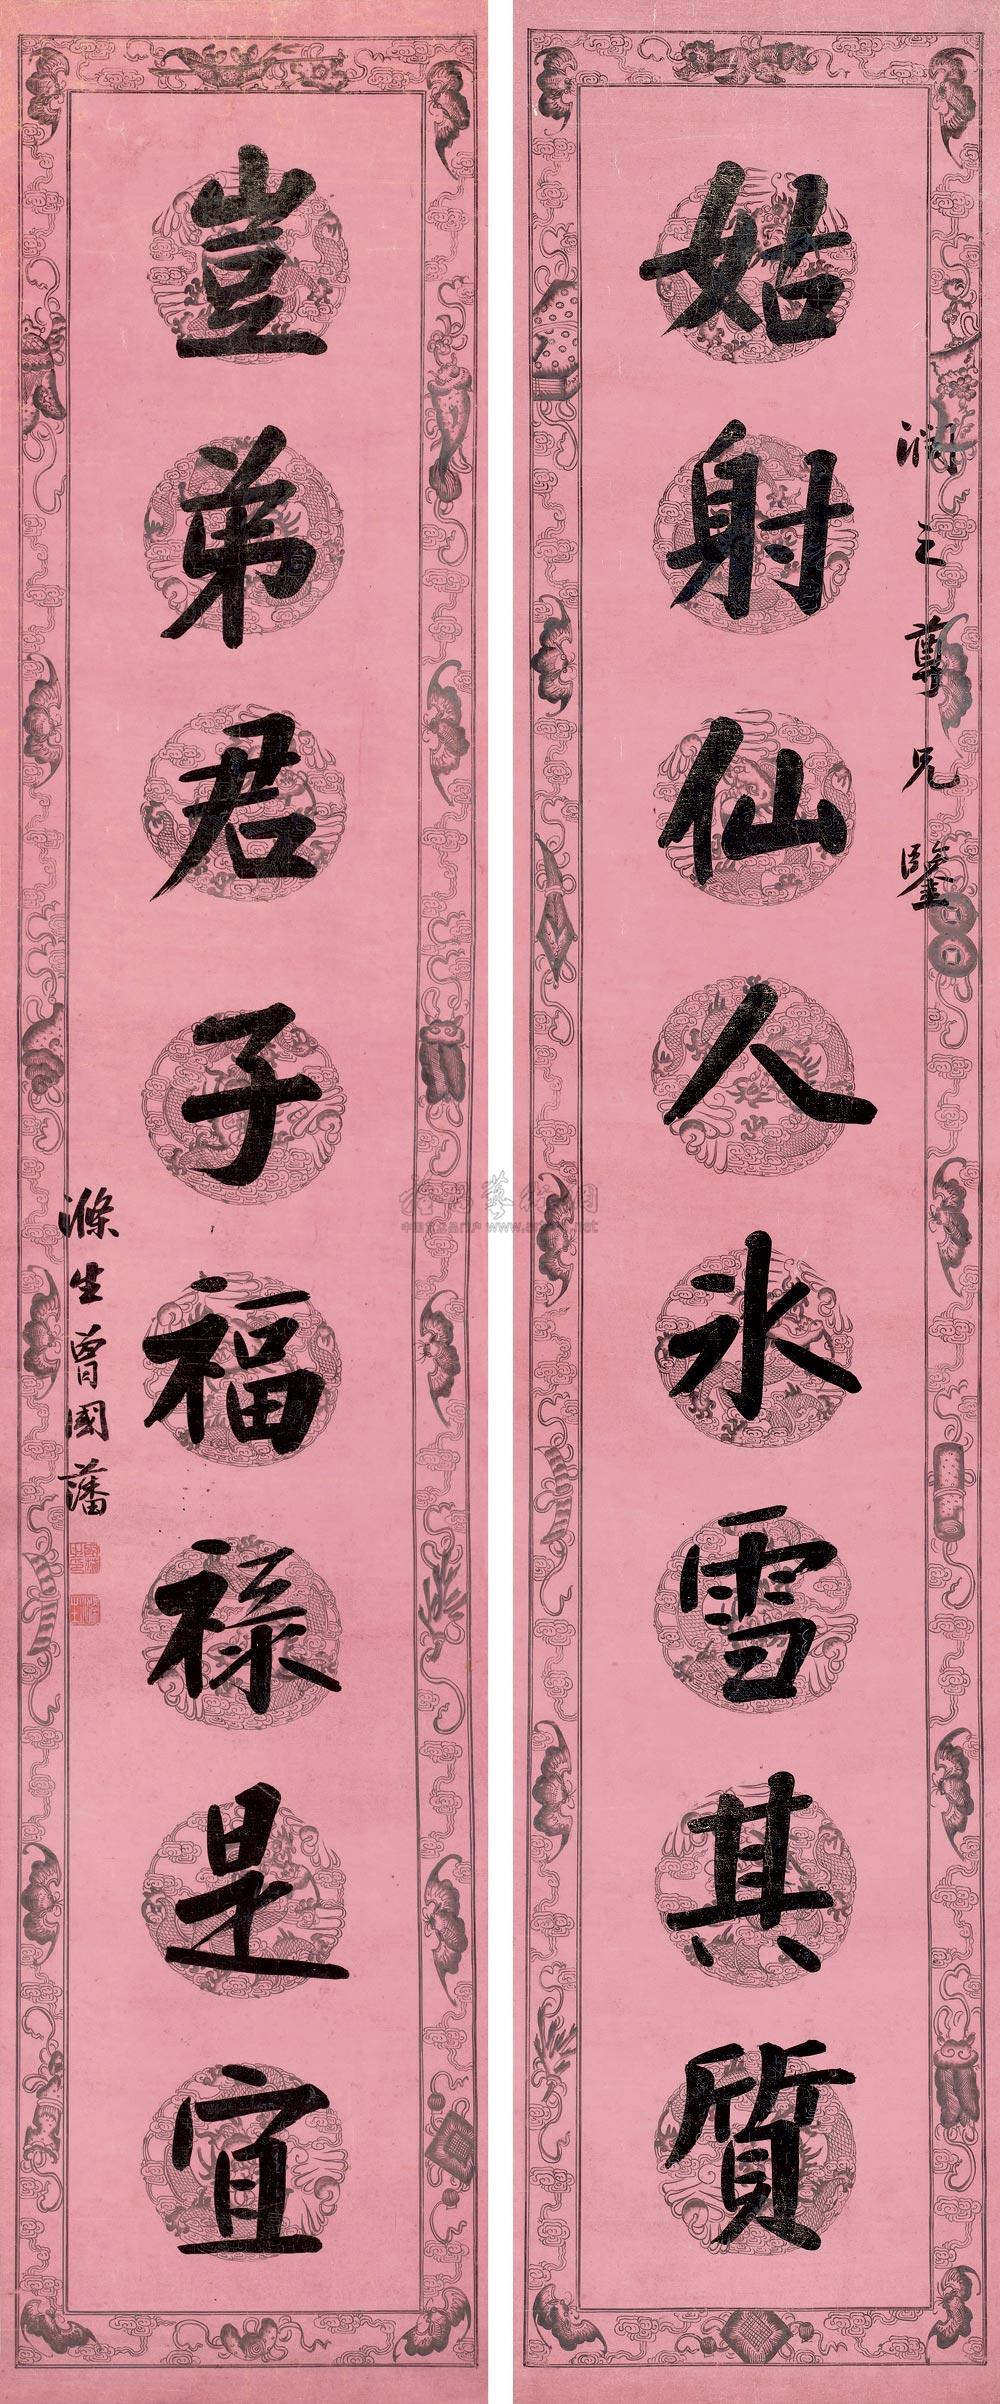 潤之尊兄鑒
姑射仙人氷雪其質
豈弟君子福祿是宜
滌生曾國藩